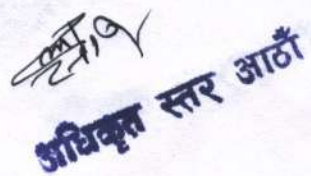 अधिकृत स्तर आठौं